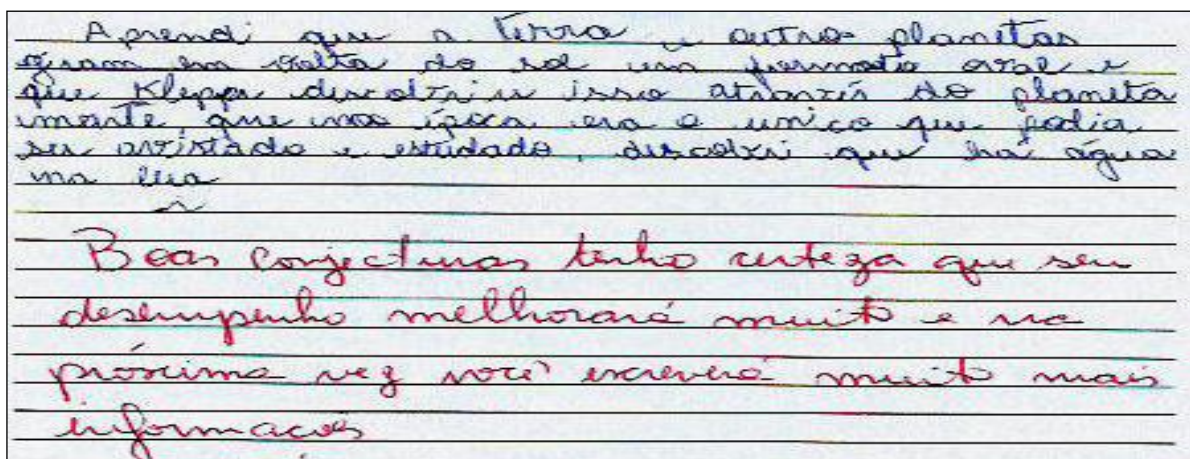 Aprendi que a terra e outros planetas
giram em volta do sol um formato oval e
que Klepper descobriu isso através do planeta
marte, que na época era o unico que podia
ser avistado e estudado, descobri que há água
na lua
Boas conjecturas tenho certeza que seu
desempenho melhorará muito e na
próxima vez você escreverá muito mais
informacoes